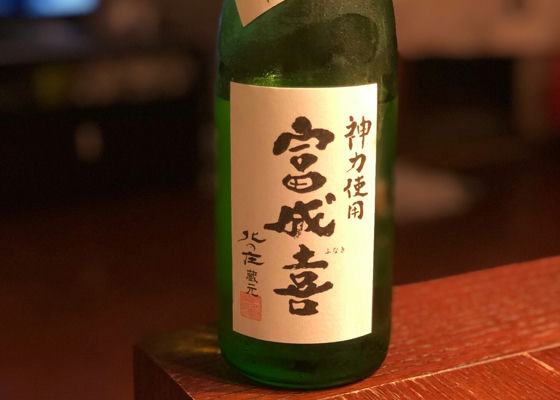 神力使用
富成喜
ふなき
北の庄
蔵元